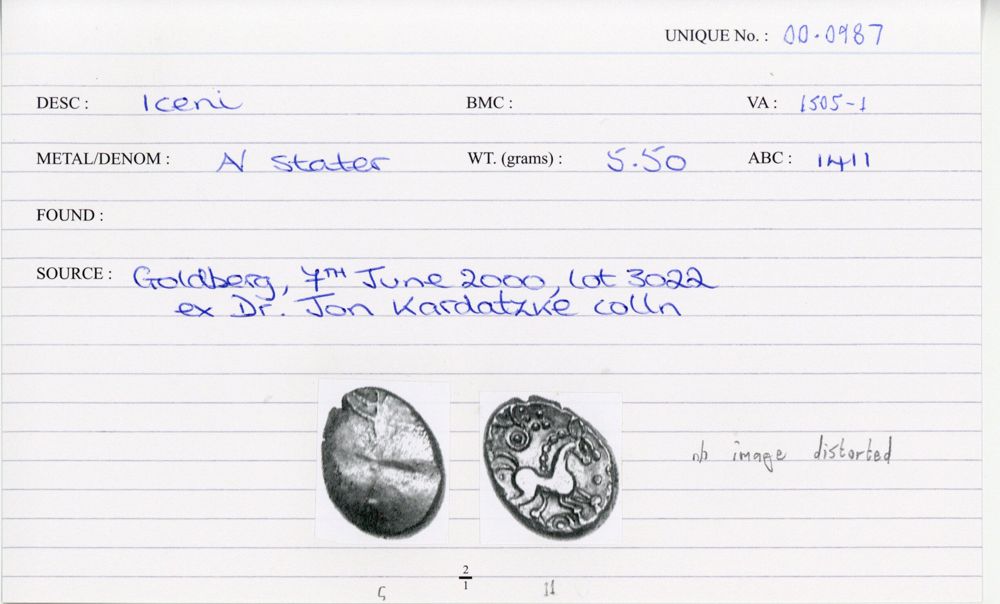 UNIQUE No. : 00-0987
DESC : Iceni BMC : VA : 1505-1
METAL/DENOM : N stater WT. (grams) : 5.50 ABC : 1411
FOUND :
SOURCE : Goldberg, 7TH June 2000, lot 3022
ex Dr. Jon Kardatzke colln
nb image distorted
2
1